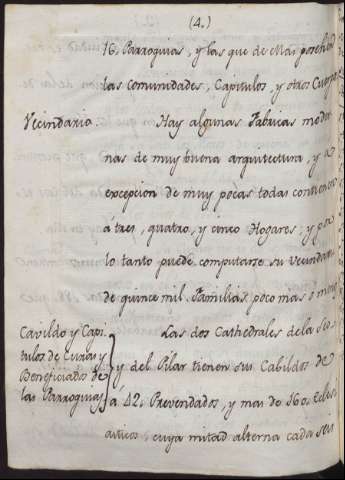 (4.)
16. Parroquias, y las que de Mas posehen
las Comunidades, Capitulos, y otros Cuerpos
Vecindario. Hay algunas Fabricas moder
nas de muy buena arquitectura, y a
excepcion de muy pocas todas contienen
a tres, quatro, y cinco Hogares, y por
lo tanto puede computarse su Vecindario
de quince mil Familias poco mas o menos
Cavildo y Capi
tulos de Curas y
Beneficiados de
las Parroquias
Las dos Cathedrales de la Seo,
y del Pilar tienen sus Cabildos de
a 42. Prevendados, y mas de 160. eclesi
asticos: cuya mitad alterna cada seis